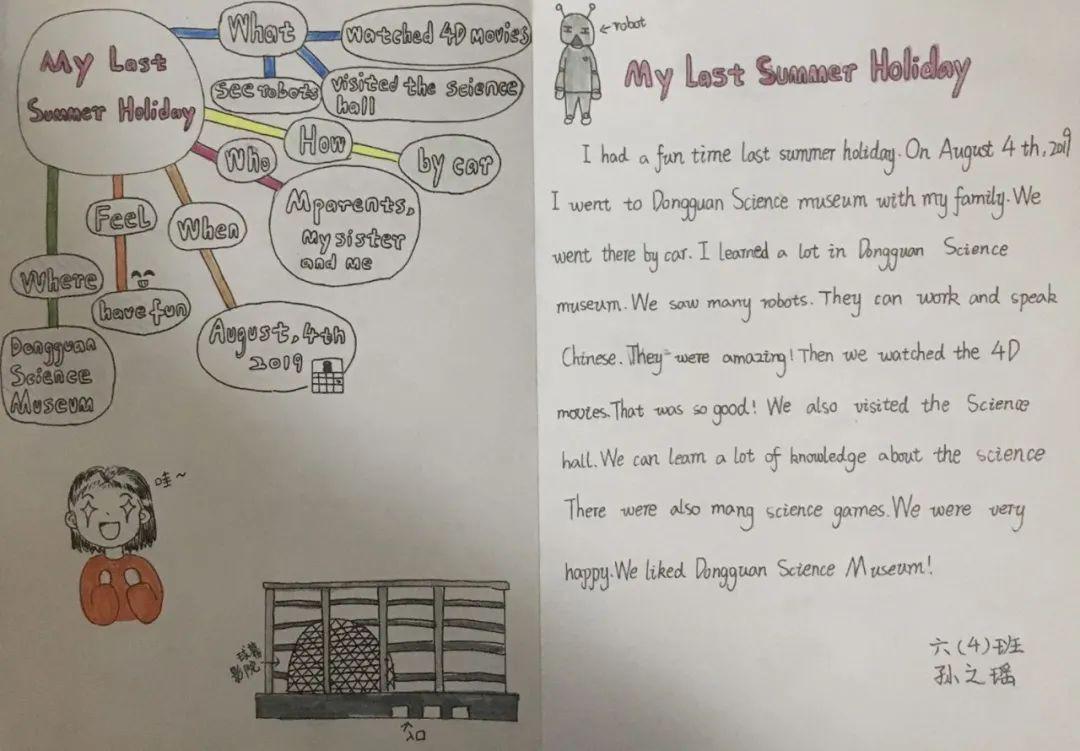 My Last
Summer Holiday
What
watched 4D movies
see robots
visited the science
hall
How
by car
Who
Mparents,
My sister
and me
When
August, 4th
2019
Feel
have fun
Where
Dongguan
Science
Museum
哇~
球幕
影院
入口
robot
My Last Summer Holiday
I had a fun time last summer holiday. On August 4th, 2019
I went to Dongguan Science museum with my family. We
went there by car. I learned a lot in Dongguan Science
museum. We saw many robots. They can work and speak
Chinese. They were amazing! Then we watched the 4D
movies. That was so good! We also visited the Science
hall. We can learn a lot of knowledge about the science
There were also mang science games. We were very
happy. We liked Dongguan Science Museum!
六(4)班
孙之瑶